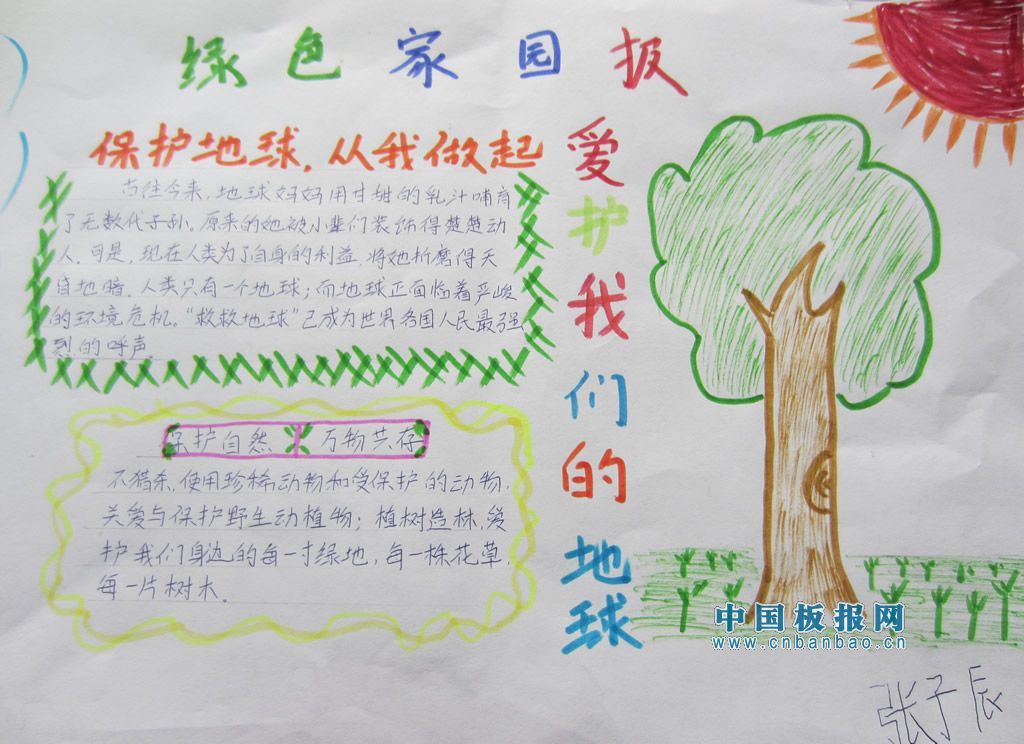 绿色家园报
保护地球，从我做起
古往今来，地球妈妈用甘甜的乳汁哺育
了无数代子孙。原来的她被小辈们装饰得楚楚动
人。可是，现在人类为了自身的利益，将她折磨得天
昏地暗。人类只有一个地球；而地球正面临着严峻
的环境危机。“救救地球”已成为世界各国人民最强
烈的呼声。
保护自然 万物共存
不猎杀、使用珍稀动物和受保护的动物，
关爱与保护野生动植物；植树造林，爱
护我们身边的每一寸绿地，每一株花草，
每一片树木。
爱护我们的地球
中国板报网
www.cnbanbao.cn
张子辰